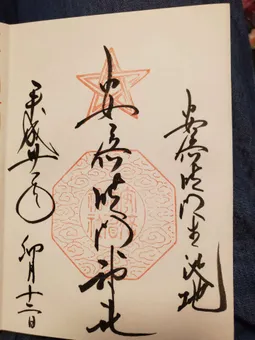 安倍晴明生誕地
安倍晴明神社
平成
卯月十二日